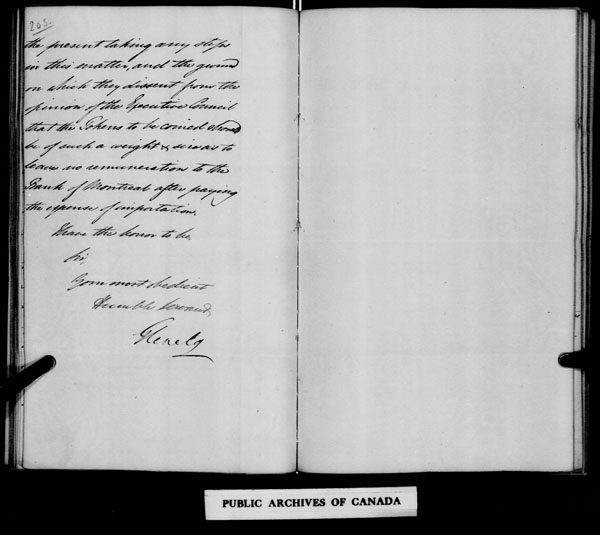 203.
the present taking any steps
in this matter, and the ground
on which they dissent from the
opinion of the Executive Council
that the Tokens to be coined should
be of such a weight & size as to
leave no remuneration to the
Bank of Montreal after paying
the expense of importation.
I have the honor to be,
Sir,
Your most obedient
Humble Servant,
Glenelg
PUBLIC ARCHIVES OF CANADA